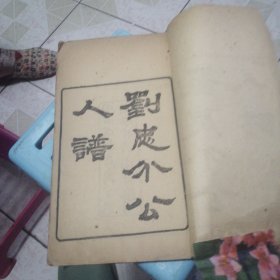 劉忠介公
人譜